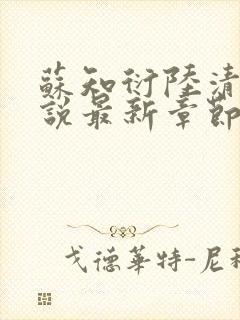 蘇知衍陸清
說最新章節
戈德華特-尼科